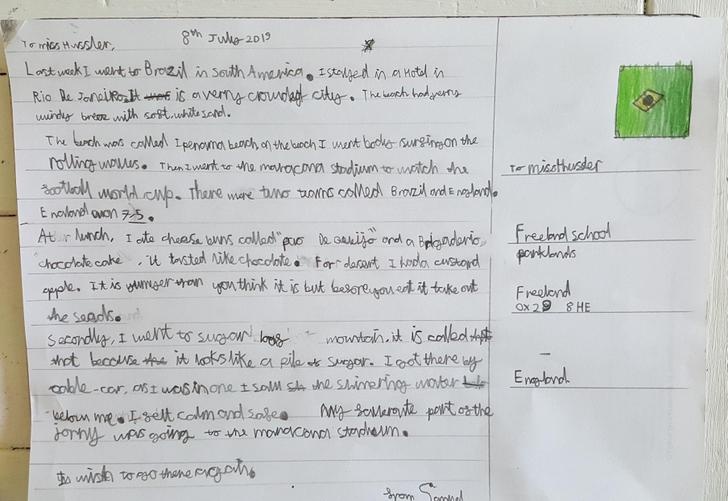 To miss Hussler,
8th July 2019
Last week I went to Brazil in South America. I stayed in a Hotel in
Rio De Janeiro. It is a verry crowded city. The beach had verry
windy breze with soft, white sand.
The beach was called Ipenama beach, on the beach I went body surfing on the
rolling waves. Then I went to the maracana stadium to watch the
football world cup. There were two teams called Brazil and England.
England won 7-5.
At lunch, I ate cheese buns called "pao De queijo" and a Brigaderio,
chocolate cake, it tasted like chocolate. For desert I had a custard
apple. It is yumyer than you think it is but before you eat it take out
the seads.
Secondly, I went to sugar loaf mountain, it is called
that because it looks like a pile of sugar. I got there by
cable-car, as I was in one I saw the shimering water
below me. I felt calm and safe. My favourite part of the
jorny was going to the maracana stadium.
wish to go there again.
from Samuel
To miss Hussler
Freeland school
parklands
Freeland
OX29 8HE
England